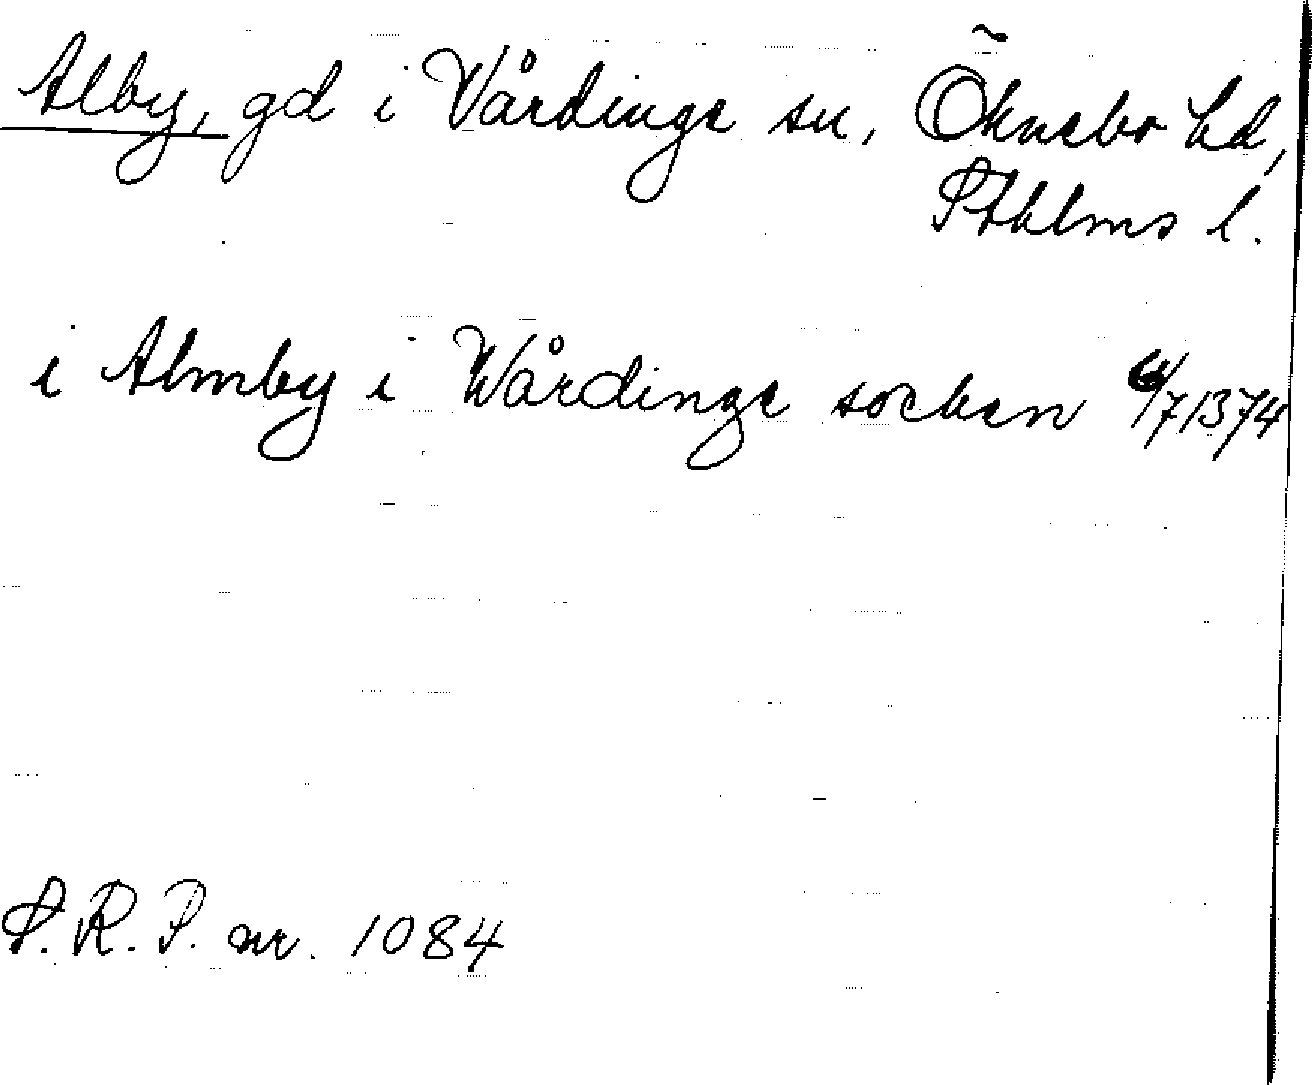 Alby, gd i Vårdinge sn, Öknebo hd,
Sthlms l.
i Almby i Wårdinge socken 6/7 1374
S.R.P. nr. 1084